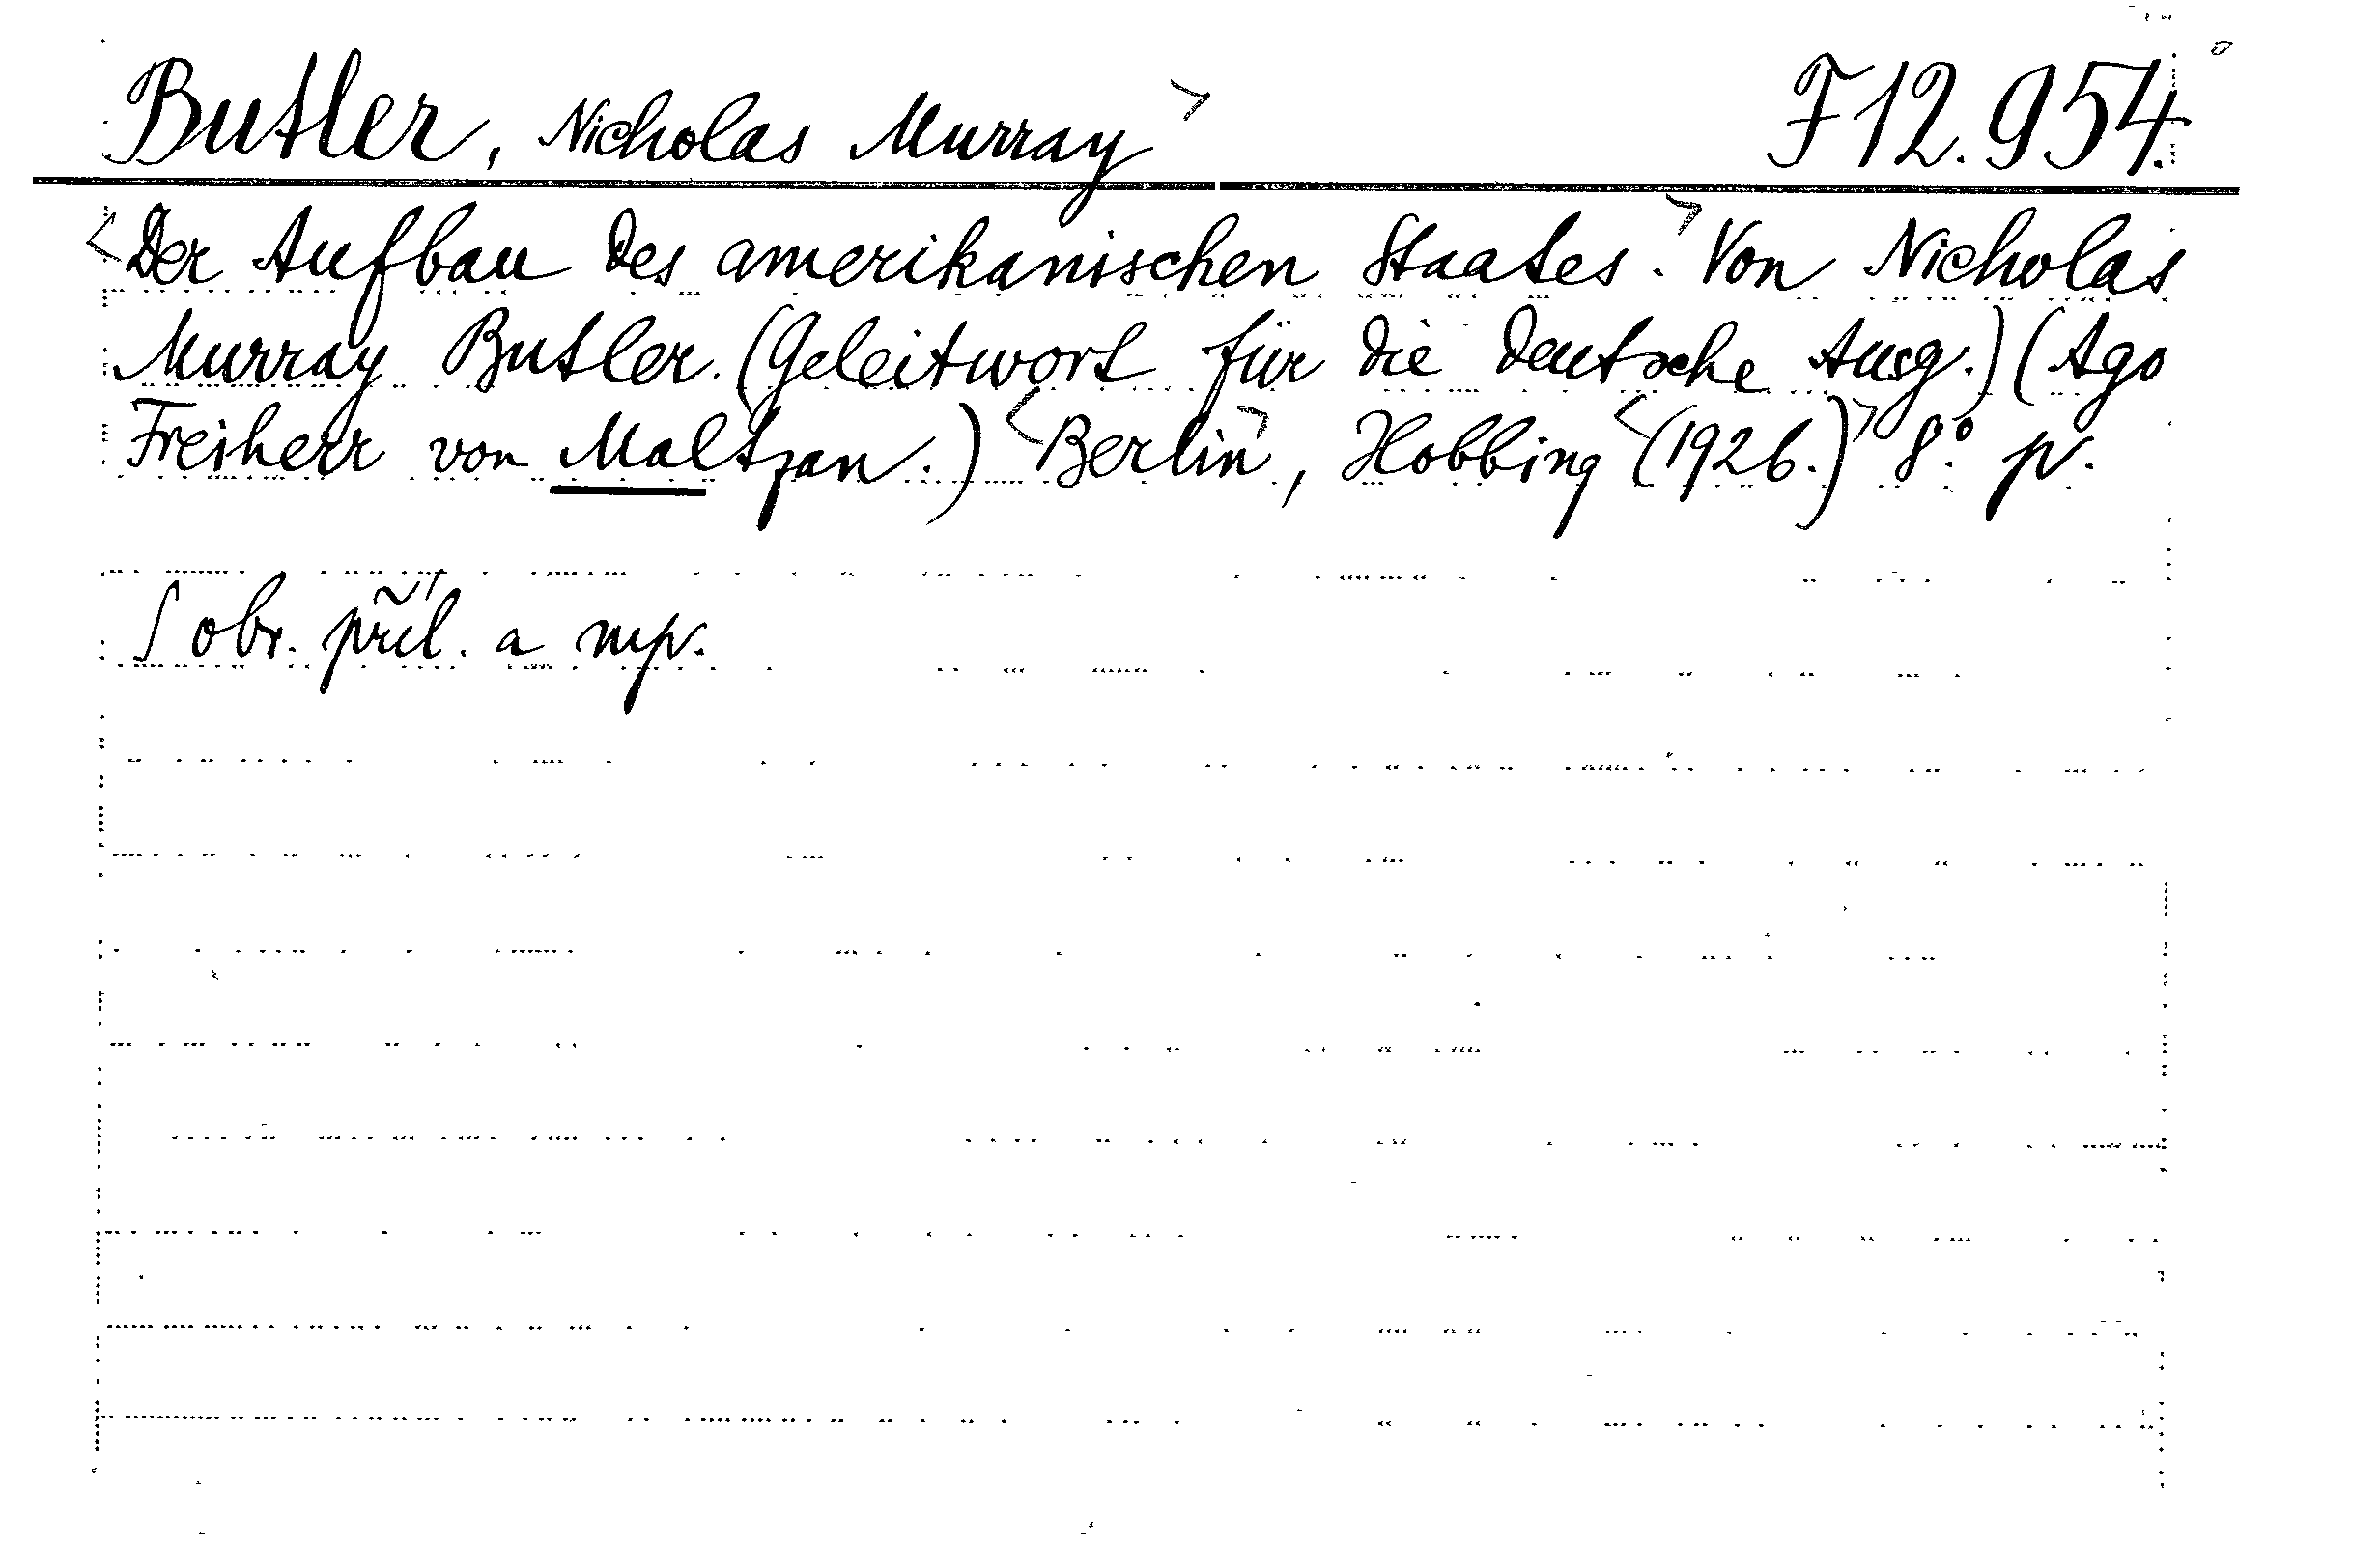 Butler, Nicholas Murray> F12.954.
<Der Aufbau des amerikanischen Staates>. Von Nicholas
Murray Butler. (Geleitwort für die deutsche Ausg.) (Ago
Freiherr von Maltzan.) <Berlin>, Hobbing <(1926.)> 8.° p.
S obr. příl. a mp.